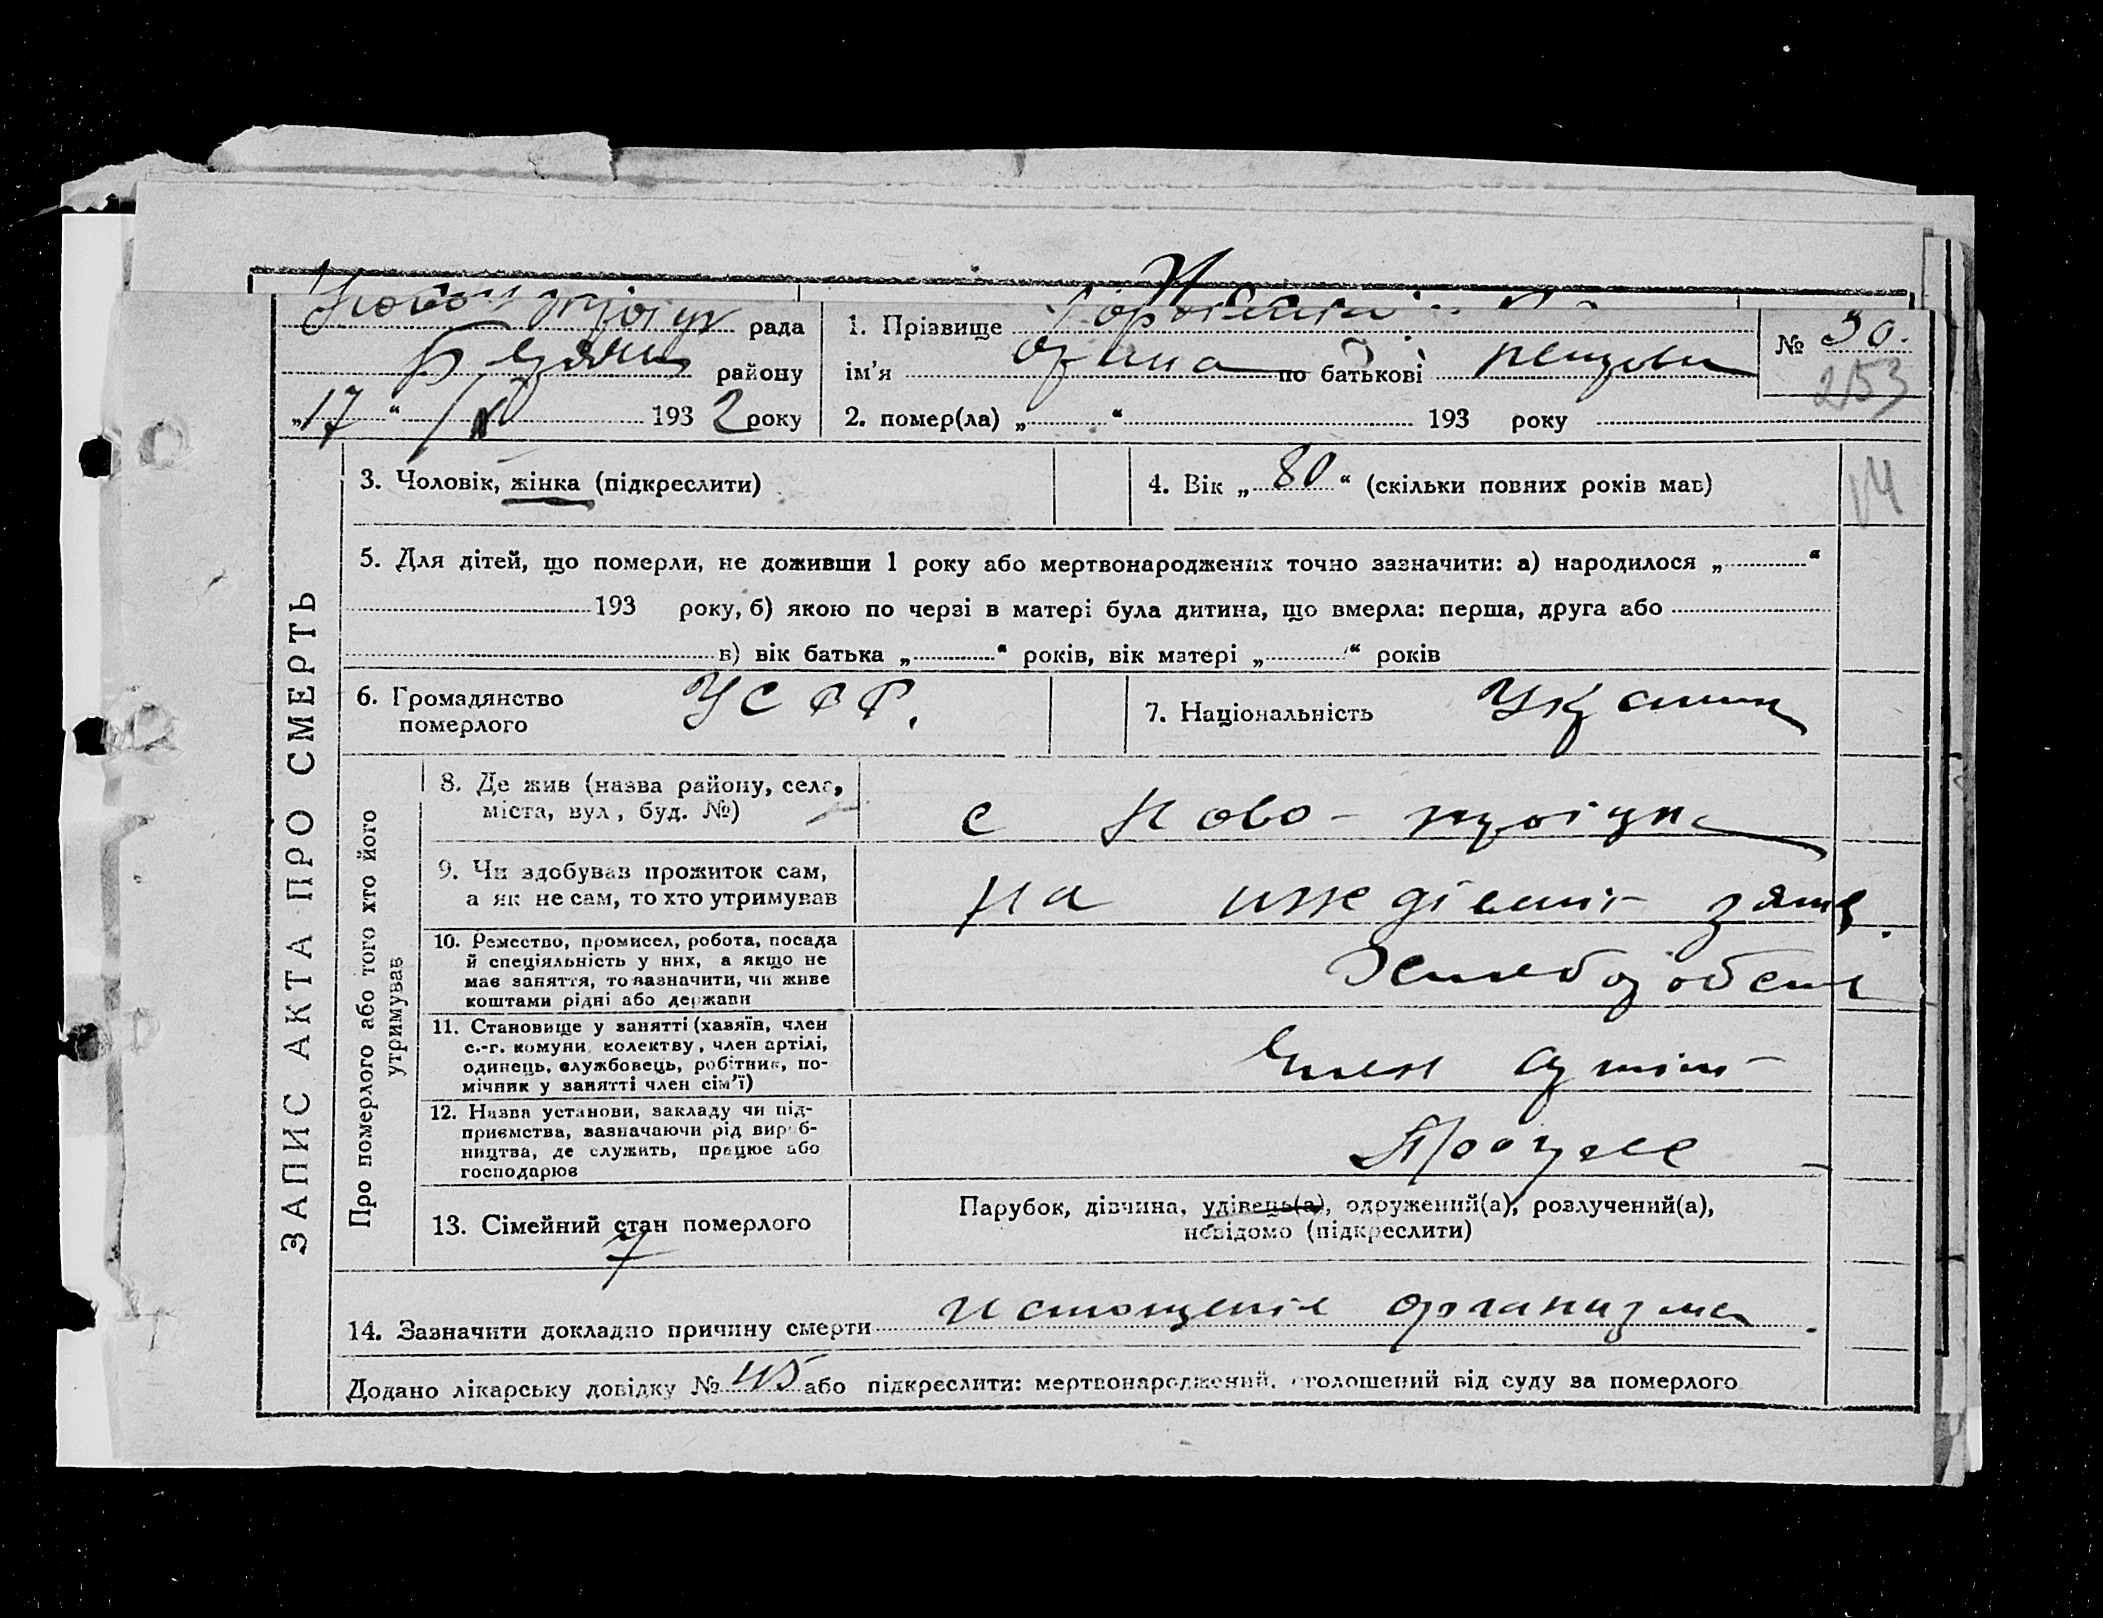 рада
району
„17“ IV 1932 року
1. Прізвище
ім’я по батькові
2. помер(ла) „ “ 193 року
№ 30.
253
14
ЗАПИС АКТА ПРО СМЕРТЬ
3. Чоловік, жінка (підкреслити)
4. Вік „80“ (скільки повних років мав)
5. Для дітей, що померли, не доживши 1 року або мертвонароджених точно зазначити: а) народилося „ “
193 року, б) якою по черзі в матері була дитина, що вмерла: перша, друга або
в) вік батька „ “ років, вік матері „ “ років
6. Громадянство
померлого
УСРР.
7. Національність
Про померлого або того хто його
утримував
8. Де жив (назва району, села,
міста, вул, буд. №)
с Ново-
9. Чи здобував прожиток сам,
а як не сам, то хто утримував
На иждівенії зятя.
10. Ремество, промисел, робота, посада
й спеціяльність у них, а якщо не
має заняття, то зазначити, чи живе
коштами рідні або держави
11. Становище у занятті (хазяїн, член
с.-г. комуни, колектву, член артілі,
одинець, службовець, робітник, по-
мічник у занятті член сім’ї)
Член
12. Назва установи, закладу чи під-
приємства, зазначаючи рід вироб-
ництва, де служить, працює або
господарює
13. Сімейний стан померлого
Парубок, дівчина, удівець(а), одружений(а), розлучений(а),
невідомо (підкреслити)
14. Зазначити докладно причину смерти истощеніе организма.
Додано лікарську довідку № 45 або підкреслити: мертвонароджений, оголошений від суду за померлого